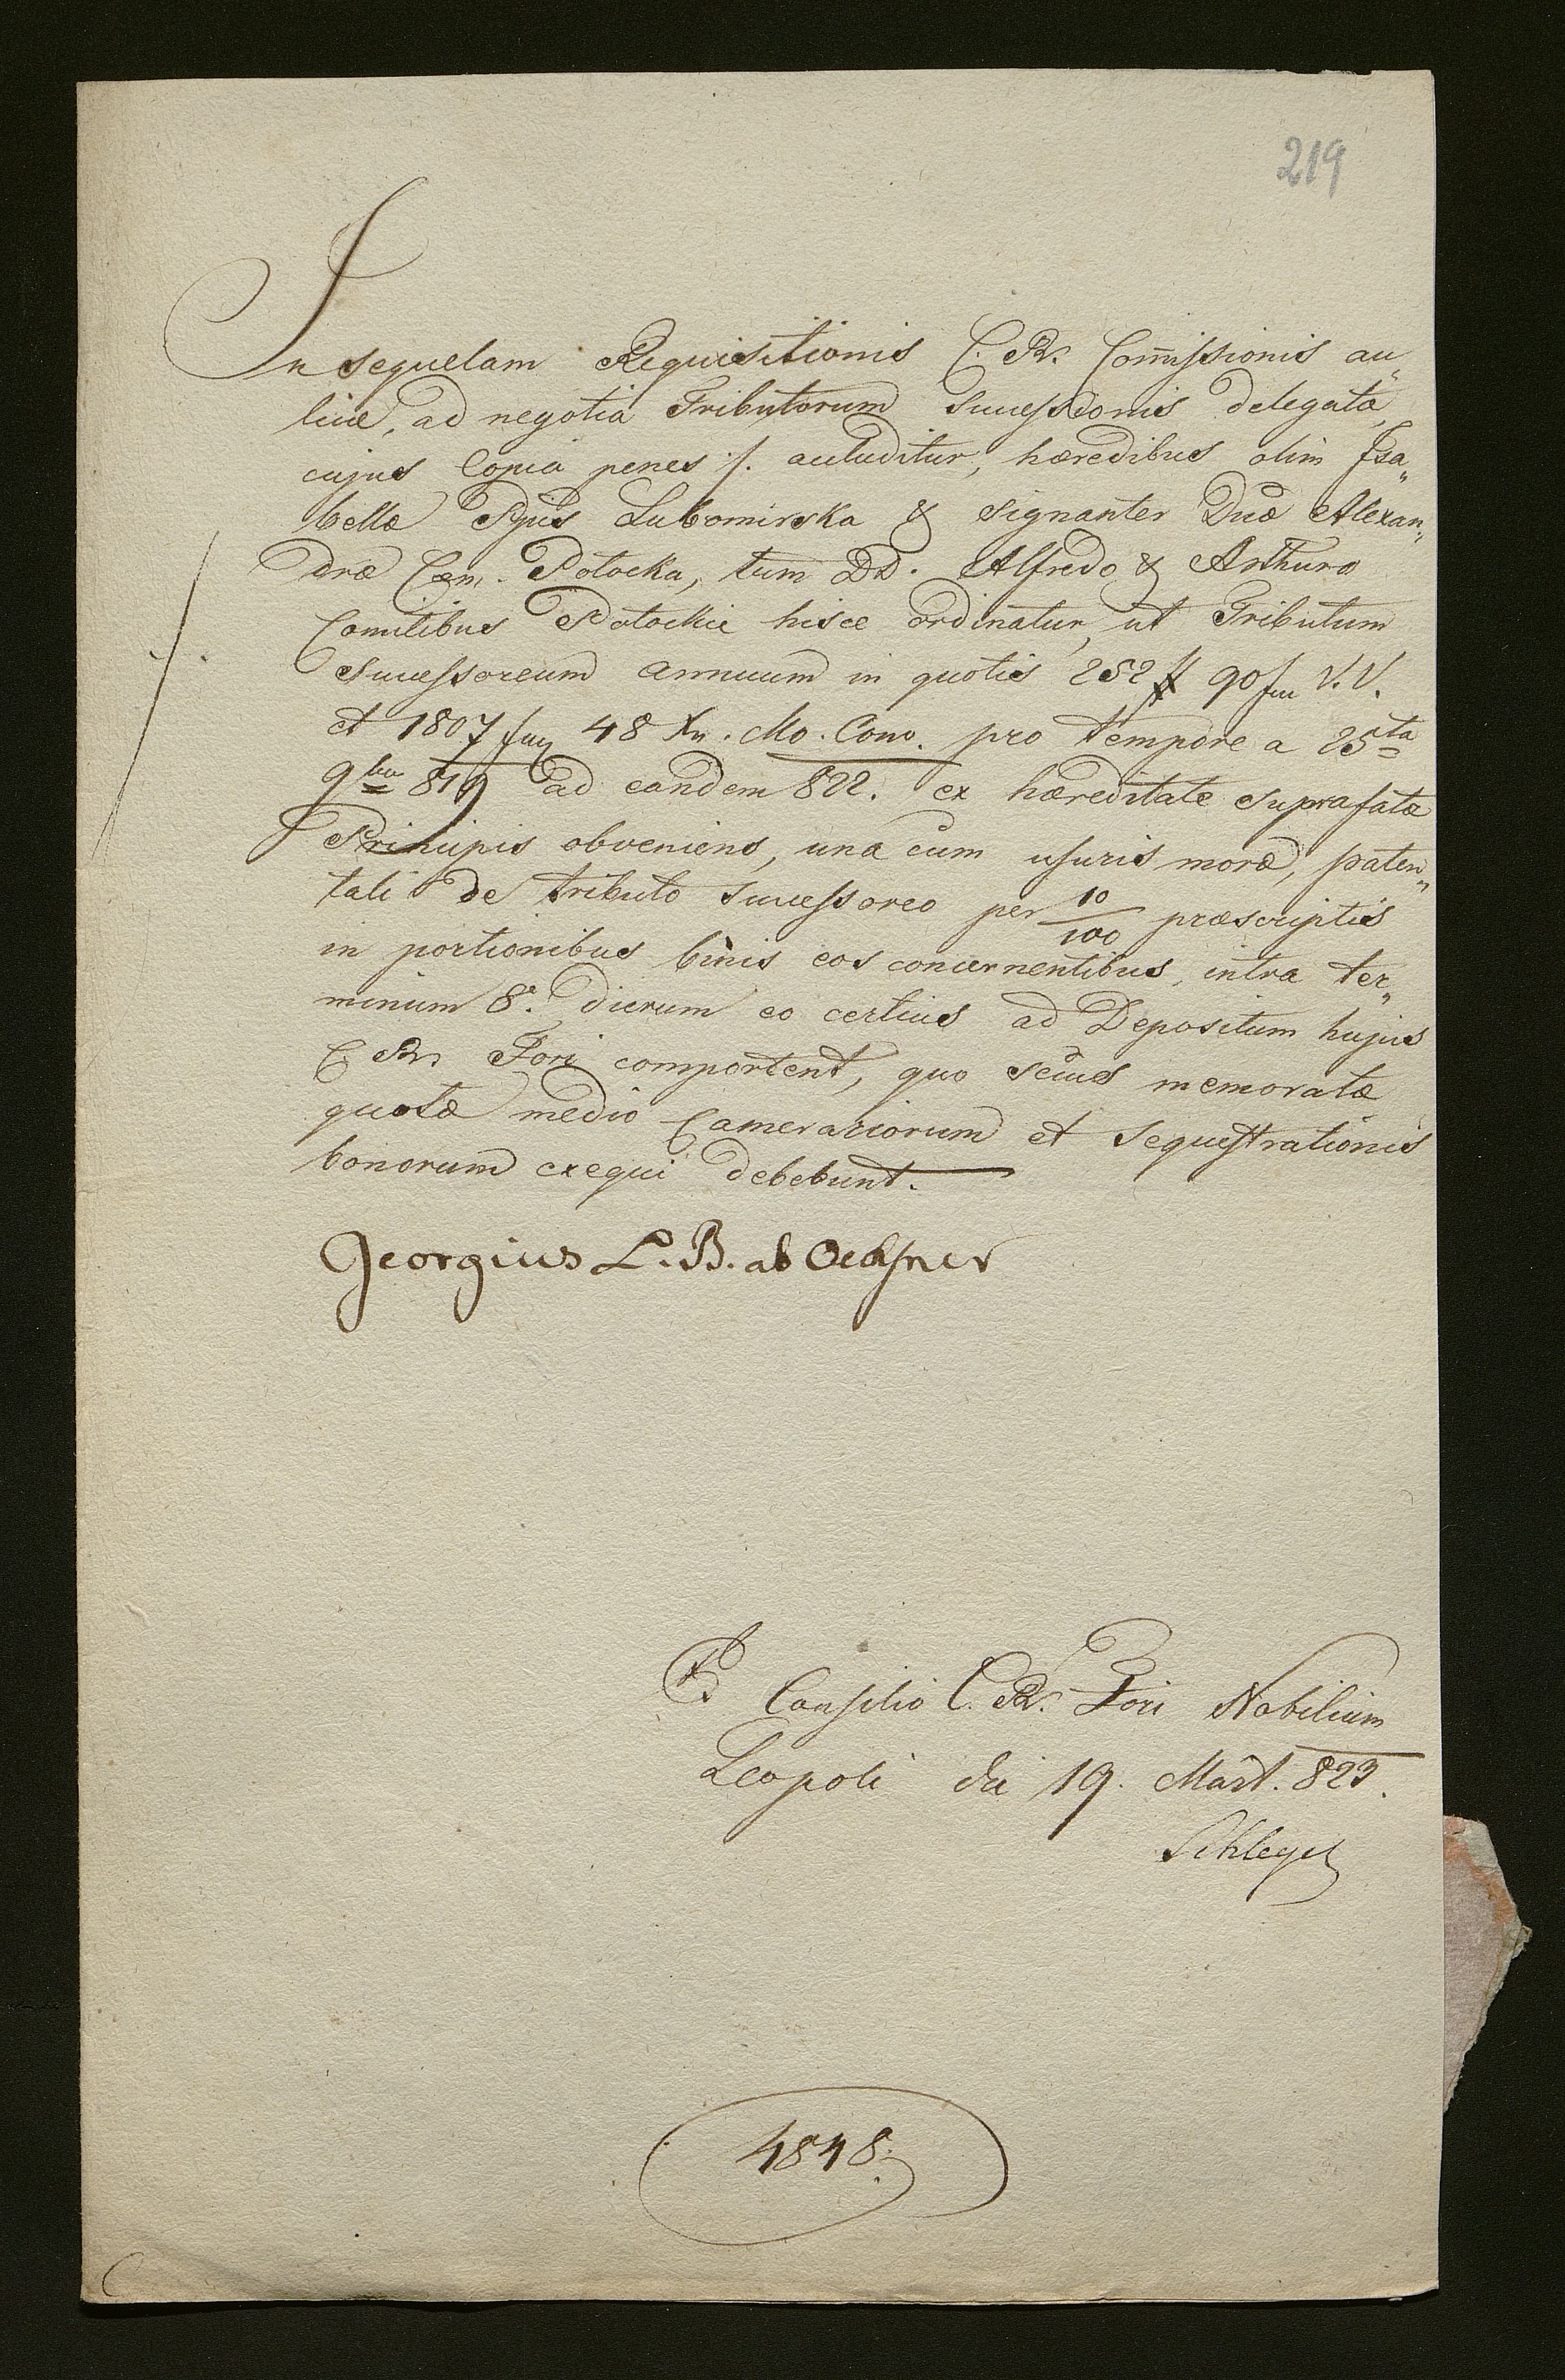 219
In sequelam Requisitionis C. R. Com̄issionis au„
licæ, ad negotia Tributorum Successionis delegatæ,
cujus Copia penes ./. accluditur, hæredibus olim Isa„
bellæ Ppis Lubomirska & signanter Dnæ Alexan„
dræ Com. Potocka, tum DD. Alfredo & Arthuro
Comitibus Potockie hisce ordinatur, ut Tributum
Successoreum annuum in quotis 252 90 V. V.
et 1807 48 Xr. Mo. Conv. pro tempore a 25ta
9bris 819 ad eandem 822. ex hæreditate suprafatæ
Principis obveniens, una cum usuris moræ, paten„
tali de tributo successoreo per 10/100 præscriptis
in portionibus binis eos concernentibus, intra ter„
minum 8. dierum eo certius ad Depositum hujus
C. R. Fori comportent, quo secus memoratæ
quotæ medio Camerariorum et sequestrationis
bonorum exequi debebunt.
Georgius L. B. ab Oechsner
Consilio C. R. Fori Nobilium
Leopoli die 19. Mart. 823.
Schlegel
4848.